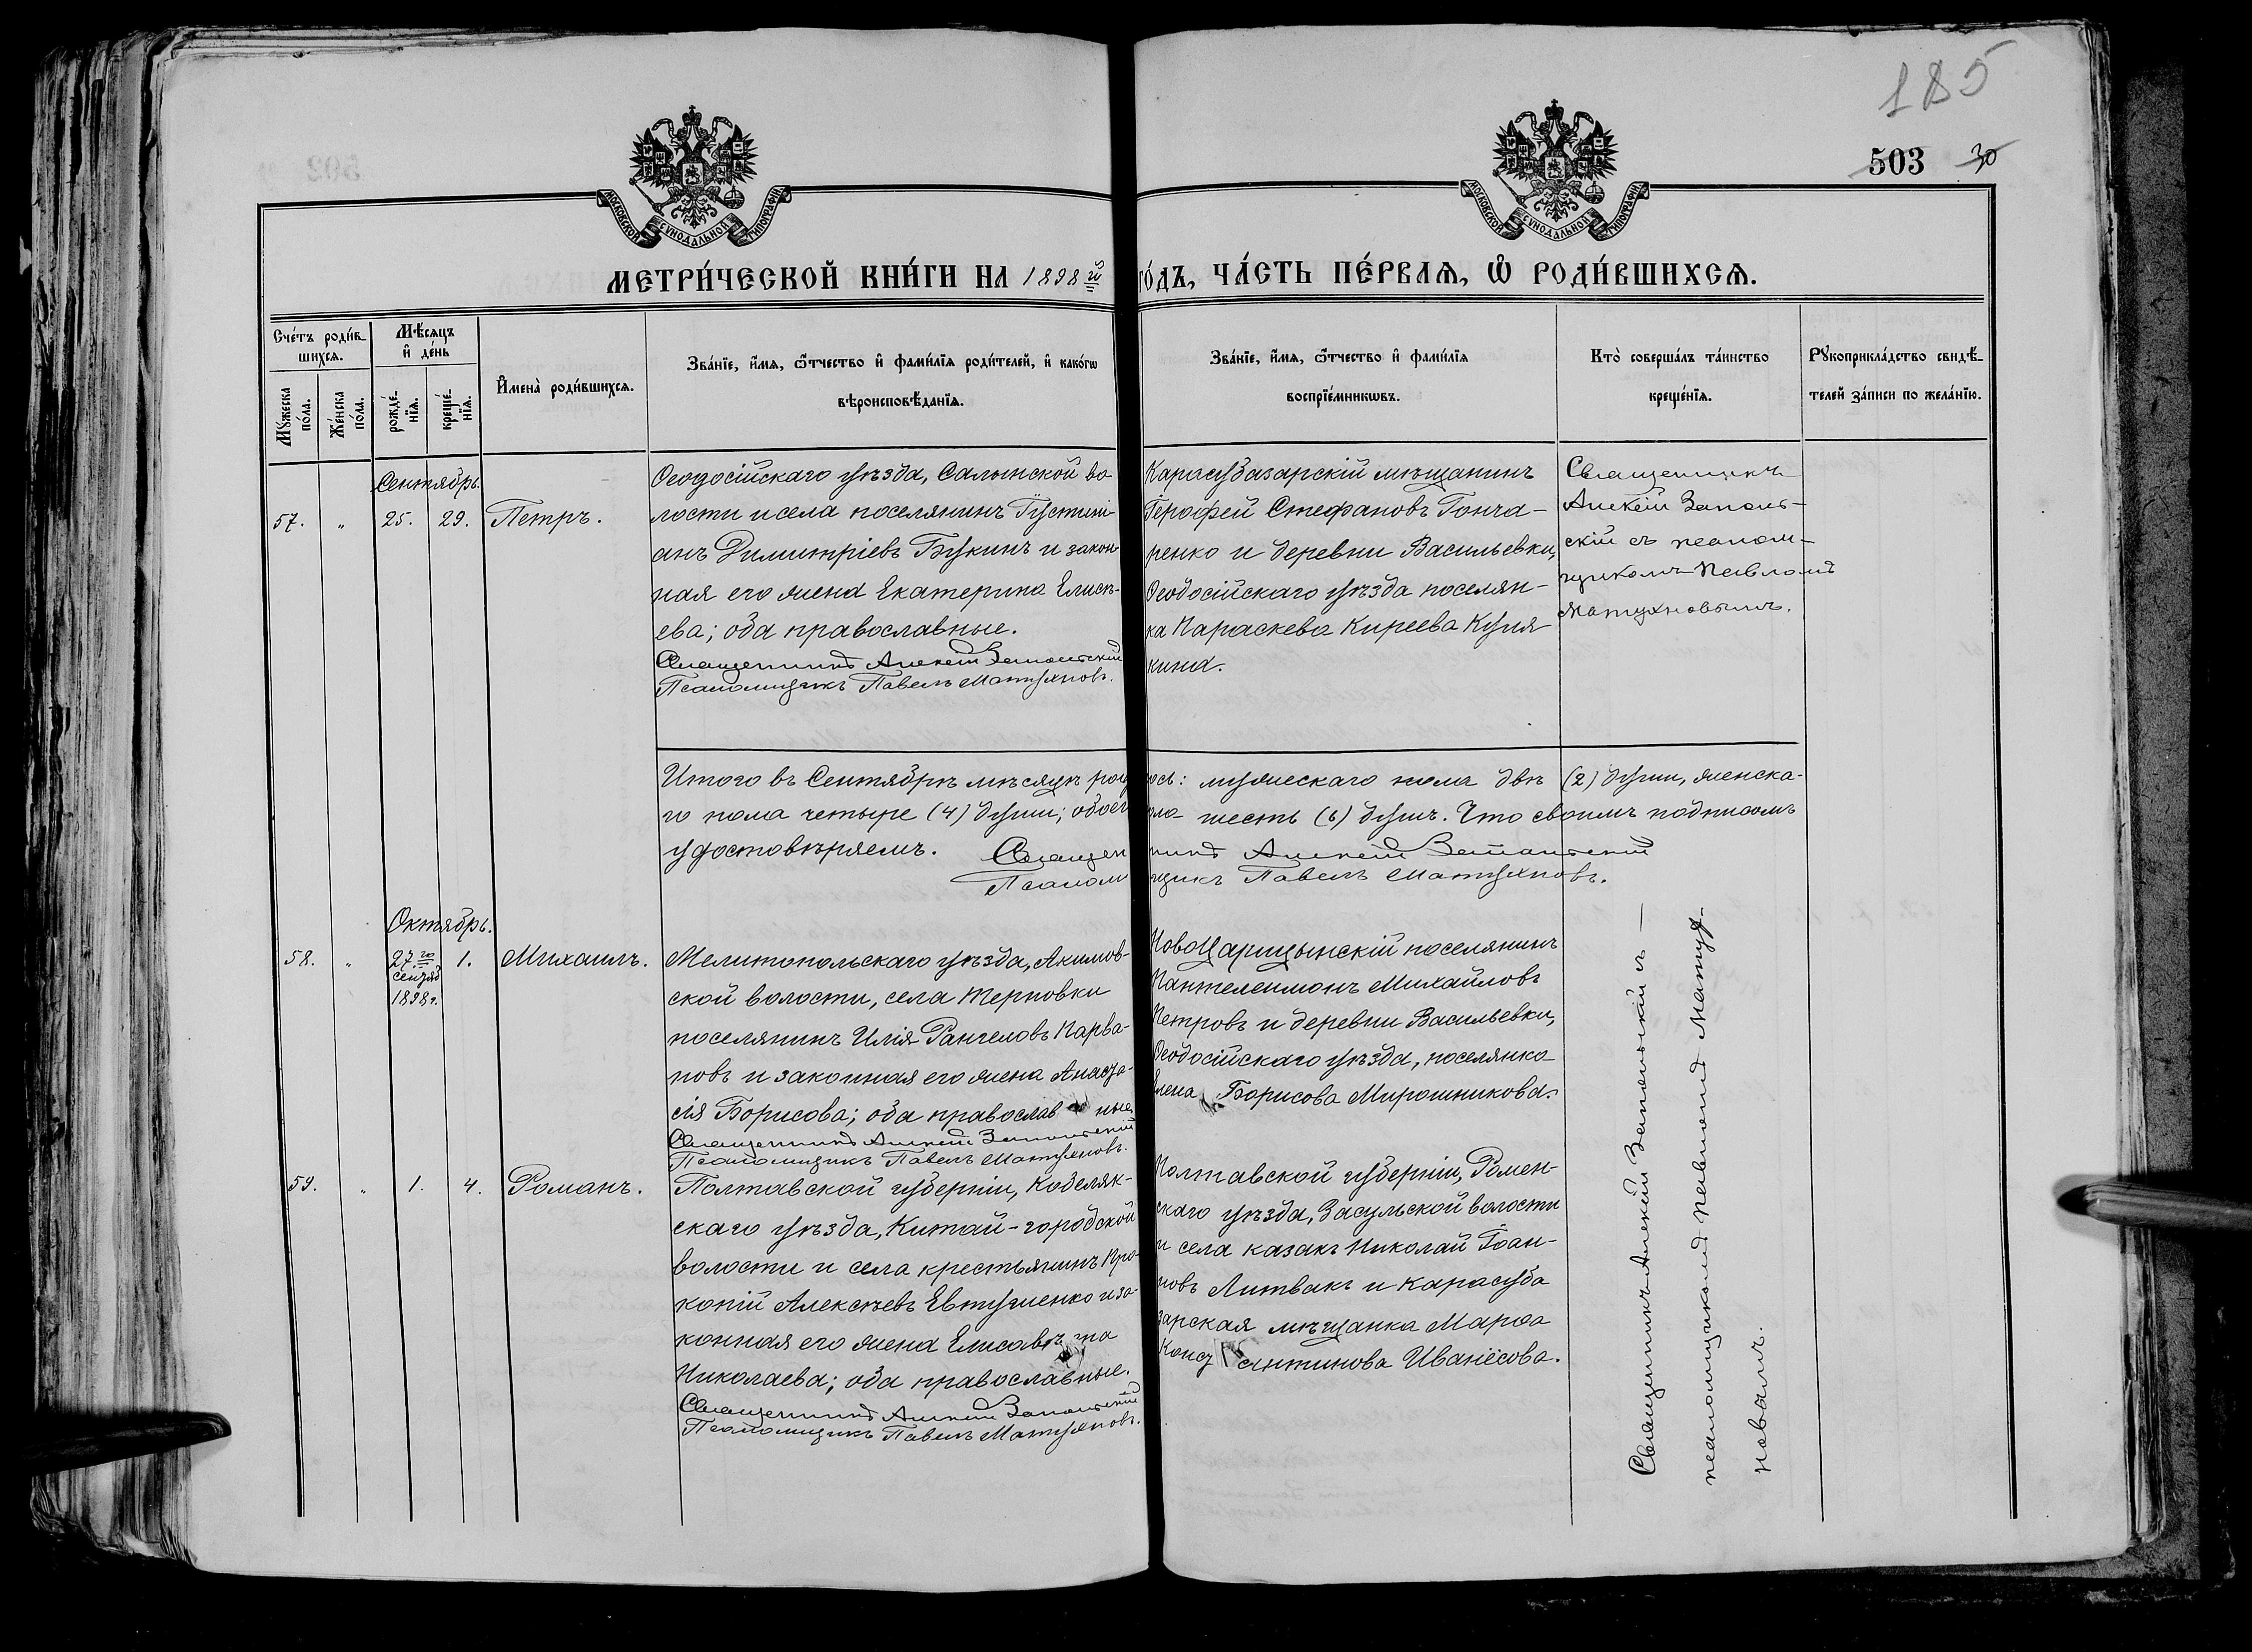 185
503 30
МОСКОВСКОЙ СѴНОДАЛЬНОЙ ТИПОГРАФІИ
МОСКОВСКОЙ СѴНОДАЛЬНОЙ ТИПОГРАФІИ
МЕТРИ́ЧЕСКОЙ КНИ́ГИ НА 1898й ГО́ДЪ, ЧА́СТЬ ПЕ́РВАѦ, Ѿ РОДИ́ВШИХСѦ.
Сче́тъ роди́в-
шихсѧ.
Мꙋжеска
по́ла.
Же́нска
по́ла.
Мѣ́сѧцъ
и҆ де́нь
рожде́-
нїѧ.
креще́-
нїѧ.
И҆мена̀ роди́вшихсѧ.
Зва́нїе, и҆́мѧ, ѻ҆́тчество и҆ фами́лїѧ роди́телей, и҆ како́гѡ
вѣроисповѣ́данїѧ.
Зва́нїе, и҆́мѧ, ѻ҆́тчество и҆ фами́лїѧ
воспрїе́мникѡвъ.
Кто̀ соверша́лъ та́инство
креще́нїѧ.
Рꙋкоприкла́дство свидѣ́-
телей за́писи по жела́нїю.
Сентябрь.
57. „ 25. 29. Петръ.
Ѳеодосійскаго уѣзда, Салынской во
лости и села поселянинъ Іустині-
анъ Димитріевъ Букинъ и закон-
ная его жена Екатерина Елисѣ-
ева; оба православные.
Священникъ Алексій Запольскій
Псаломщикъ Павелъ Матухновъ.
Карасубазарскій мѣщанинъ
Іерофей Стефановъ Гонча-
ренко и деревни Васильевки,
Ѳеодосійскаго уѣзда поселян-
ка Параскева Киреева Куля
кина.
Священникъ
Алексій Заполь-
скій съ псалом-
щикомъ Павломъ
Матухновымъ.
Итого въ Сентябрѣ мѣсяцѣ род ось: мужескаго пола двѣ (2) души, женска-
го пола четыре (4) души; обоег ола шесть (6) душъ. Что своимъ подписомъ
удостовѣряемъ. Священникъ Алексій Запольскій
Псаломщикъ Павелъ Матухновъ.
Октябрь.
58. „ 27го 1. Михаилъ.
сентяб
1898г.
Мелитопольскаго уѣзда, Акимов-
ской волости, села Терновки
поселянинъ Илія Рангеловъ Карва-
новъ и законная его жена Анаста-
сія Борисова; оба православ ные.
Священникъ Алексій Запольскій
Псаломщикъ Павелъ Матухновъ.
НовоЦарицынскій поселянинъ
Пантелеимонъ Михайловъ
Петровъ и деревни Васильевки,
Ѳеодосійскаго уѣзда, поселянка
Елена Борисова Мирошникова.
59. „ 1. 4. Романъ.
Полтавской губерніи, Кобеляк-
скаго уѣзда, Китай-городской
волости и села крестьянинъ Про-
копій Алексѣевъ Евтушенко и за-
конная его жена Елисавѣ та
Николаева; оба православные.
Священникъ Алексій Запольскій
Псаломщикъ Павелъ Матухновъ.
Полтавской губерніи, Ромен-
скаго уѣзда, Засульской волости
и села казакъ Николай Іоан-
новъ Литвакъ и карасуба
зарская мѣщанка Марѳа
Конст антинова Иванёсова.
Священникъ Алексій Запольскій съ —
псаломщикомъ Павломъ Матух-
новымъ.